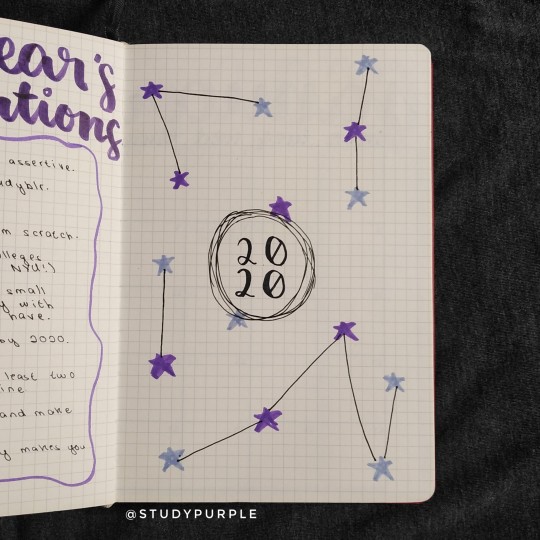 ear's
utions
assertive.
udyblr.
m scratch.
olleges
NYU!)
small
y with
have.
by 2020.
least two
ine
and make
y makes you
20
20
@STUDYPURPLE